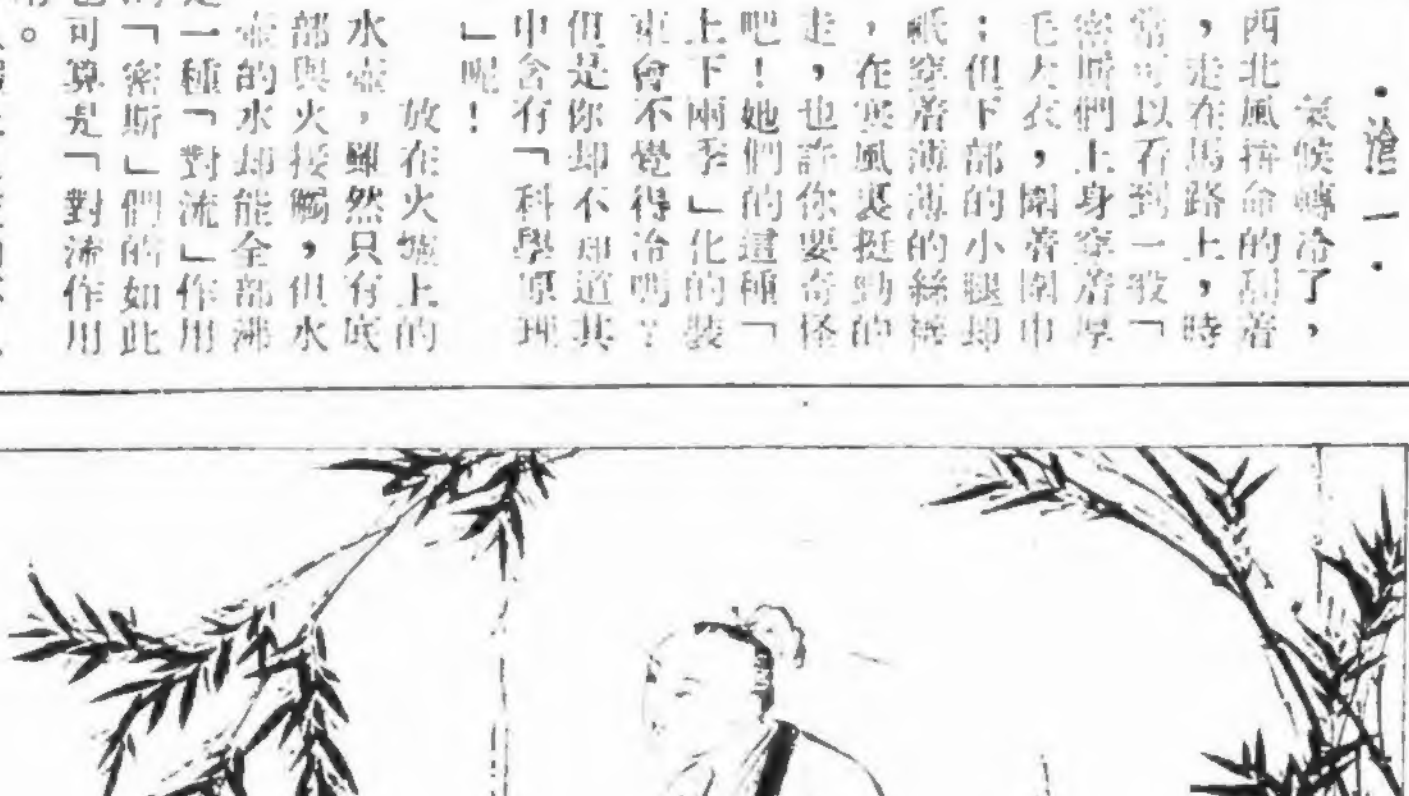 ·滄一·
氣候轉冷了,
西北風拚命的刮着
,走在馬路上,時
常可以看到一般「
密斯們上身穿着厚
毛大衣,圍着圍巾
;但下部的小腿却
祇穿着薄薄的絲襪
,在寒風裏挺勁的
走,也許你要奇怪
吧!她們的這種「
上下兩季」化的裝
束會不覺得冷嗎?
但是你却不知道其
中含有「科學原理
」呢!
放在火爐上的
水壺,雖然只有底
部與火接觸,但水
壺的水却能全部沸
是一種「對流」作用
「密斯」們的如此
也可算是「對流作用
。